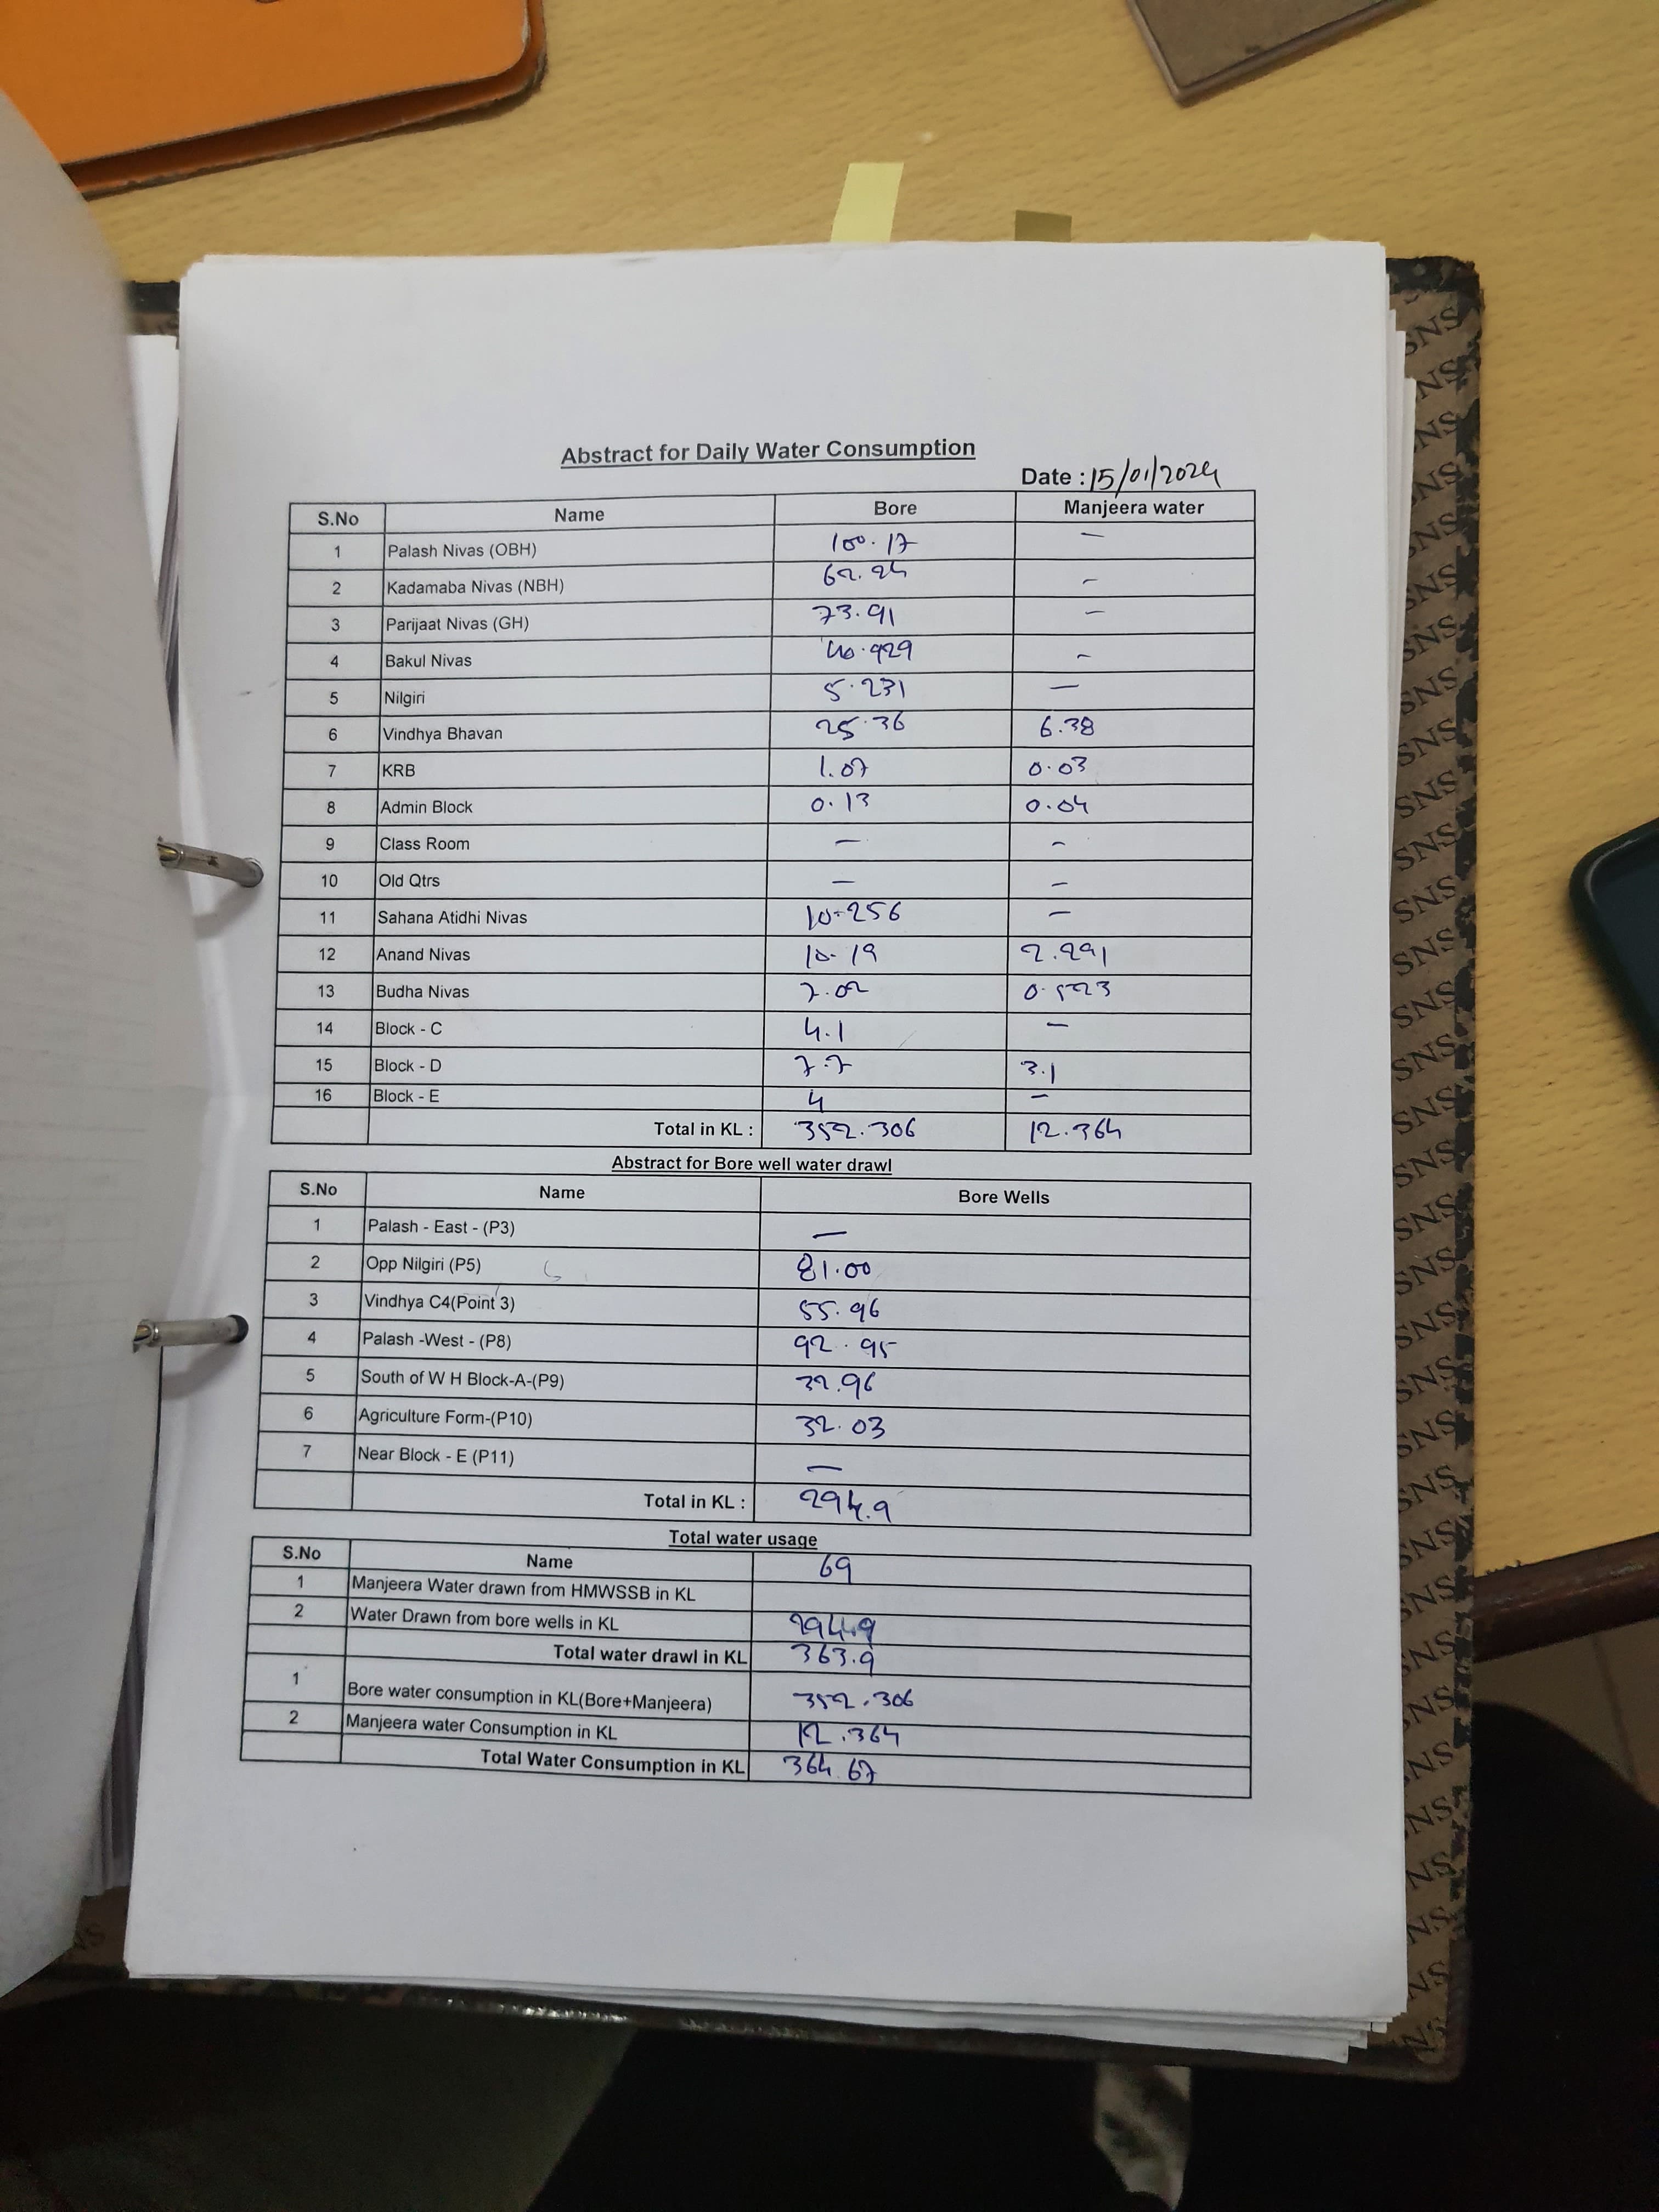 Abstract for Daily Water Consumption
Date : 15/01/2024
S.No Name Bore Manjeera water
1 Palash Nivas (OBH) 100.17 —
2 Kadamaba Nivas (NBH) 62.24 —
3 Parijaat Nivas (GH) 73.91 —
4 Bakul Nivas 40.929 —
5 Nilgiri 5.231 —
6 Vindhya Bhavan 25.36 6.38
7 KRB 1.07 0.03
8 Admin Block 0.13 0.04
9 Class Room — —
10 Old Qtrs — —
11 Sahana Atidhi Nivas 10.256 —
12 Anand Nivas 10.19 2.291
13 Budha Nivas 7.02 0.523
14 Block - C 4.1 —
15 Block - D 7.7 3.1
16 Block - E 4 —
Total in KL : 352.306 12.364
Abstract for Bore well water drawl
S.No Name Bore Wells
1 Palash - East - (P3) —
2 Opp Nilgiri (P5) 81.00
3 Vindhya C4(Point 3) 55.96
4 Palash -West - (P8) 92.95
5 South of W H Block-A-(P9) 32.96
6 Agriculture Form-(P10) 32.03
7 Near Block - E (P11) —
Total in KL : 294.9
Total water usage
S.No Name 69
1 Manjeera Water drawn from HMWSSB in KL
2 Water Drawn from bore wells in KL 294.9
Total water drawl in KL 363.9
1 Bore water consumption in KL(Bore+Manjeera) 352.306
2 Manjeera water Consumption in KL 12.364
Total Water Consumption in KL 364.67
SNS